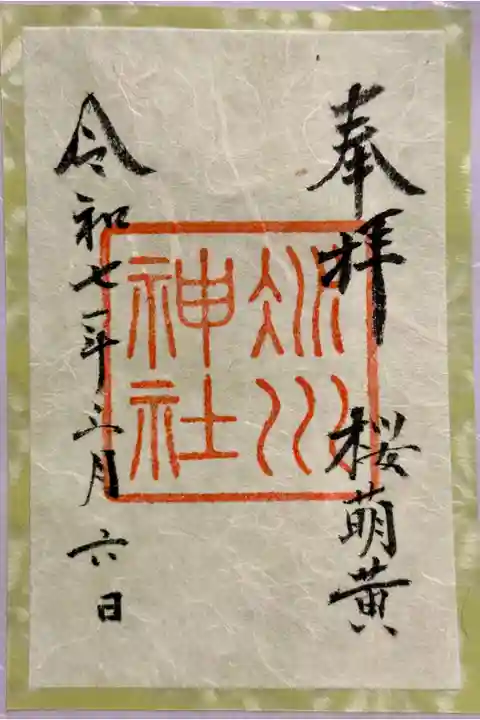 奉拝
桜萌黄
氷川
神社
令和七年三月六日